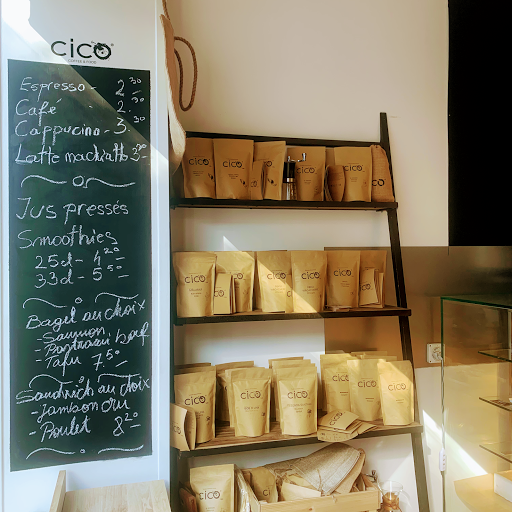 cico
Espresso - 2.30
Café - 2.30
Cappucino - 3.30
Latte machiatto 3.90
Jus pressés
Smoothies
25cl - 4.20
33cl - 5.50
Bagel au choix
- Saumon
- Pastrami bœuf
- Tofu 7.50
Sandwich au choix
- Jambon cru
- Poulet 8.20
cico
cico
cico
cico
cico
cico
cico
cico
cico
cico
cico
cico
cico
cico
cico